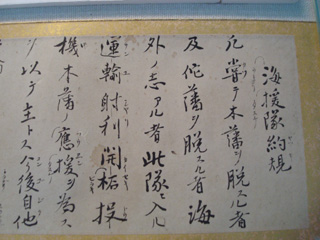 海援隊約規
凡嘗テ本藩ヲ脱スル者
及佗藩ヲ脱スル者海
外ノ志アル者此隊ニ入ル
運輸射利開柘投
機本藩ノ應援ヲ為ス
ヲ以テ主トス今後自他